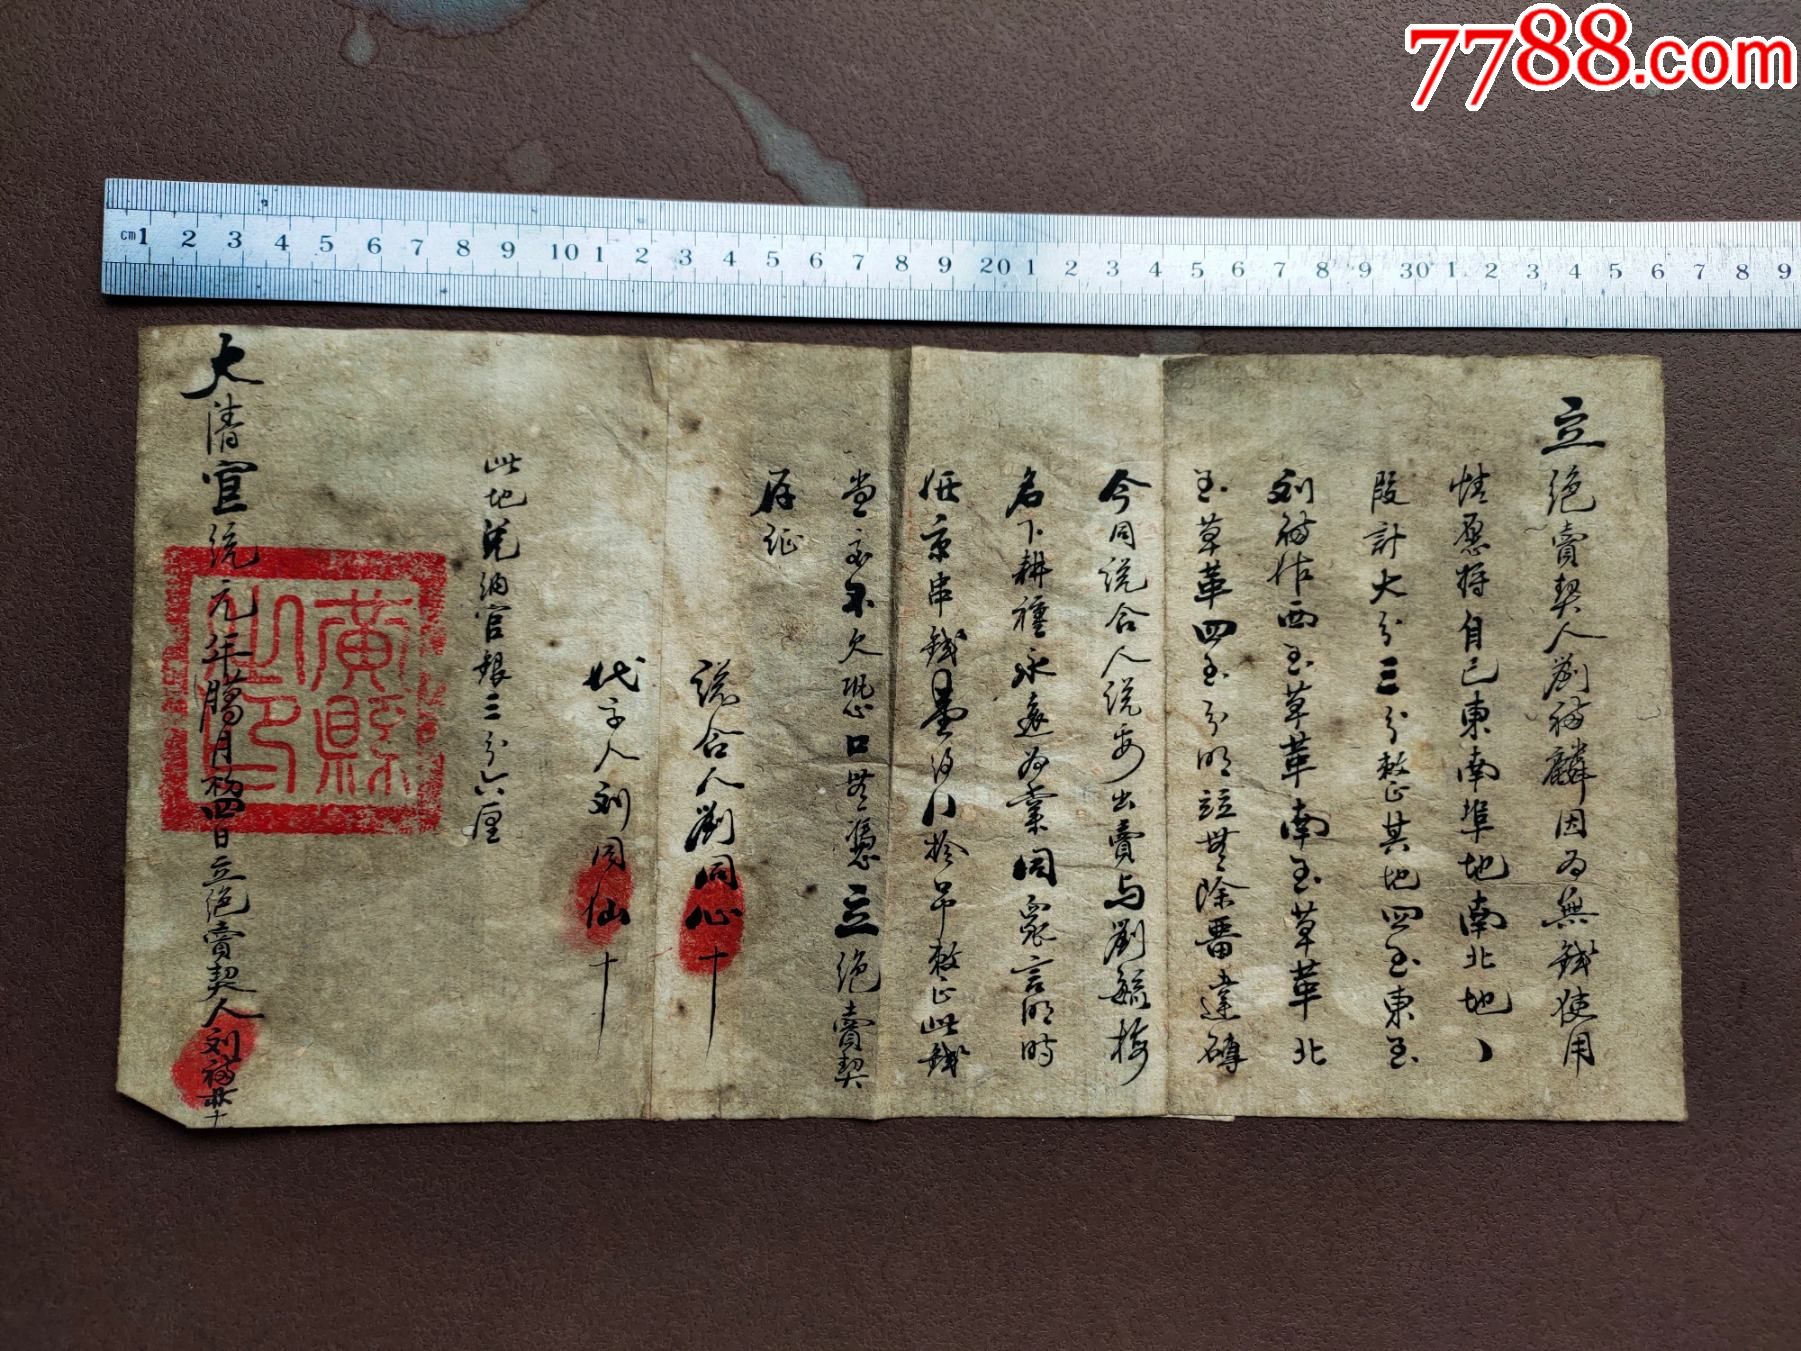 7788.com
cm 1 2 3 4 5 6 7 8 9 10 1 2 3 4 5 6 7 8 9 20 1 2 3 4 5 6 7 8 9 30 1 2 3 4 5 6 7 8 9
立絕賣契人劉福麟因為無錢使用
情愿將自己東南埠地南北地
段計大分三分整其地四至東至
刘福 西至草革南至草革北
至草革四至分明 無除 違磚
今同說合人說安出賣与劉毓梅
名下耕種永遠為業同眾言明時
京串錢壹 拾吊整正此錢
當交不欠恐口無憑立絕賣契
存证
說合人劉同心十
代字人刘同仙十
此地兑納官銀三分六厘
大清宣統元年臈月初四日立绝賣契人刘福 十
廣縣之印